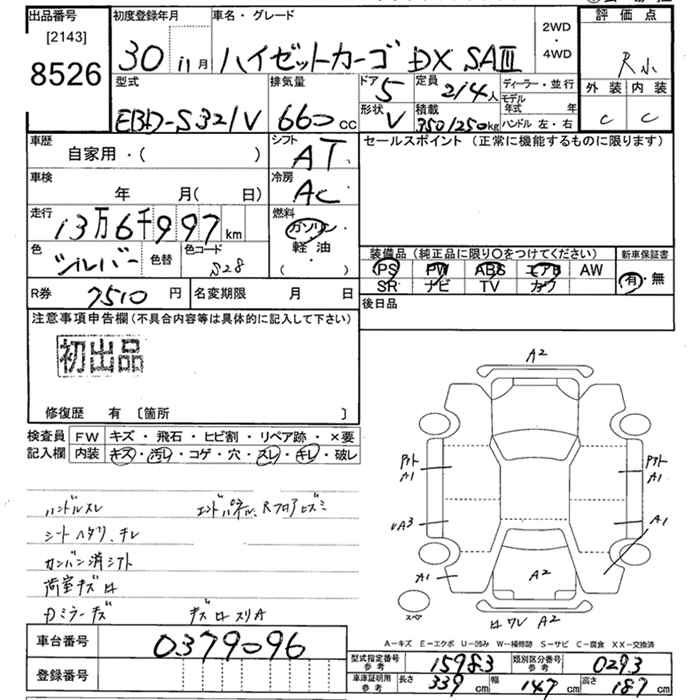 出品番号
[2143]
8526
初度登録年月
30 11月
車名・グレード
ハイゼットカーゴ DX SAⅢ
2WD
・
4WD
評価点
R小
外装 内装
C C
型式
EBD-S321V
排気量
660cc
ドア
5
形状
V
定員
2/4人
積載
350/250kg
ディーラー・並行
モデル年式 年
ハンドル 左・右
車歴
自家用・( )
シフト
AT
セールスポイント (正常に機能するものに限ります)
車検
年 月(日)
冷房
AC
走行
13万6千997km
燃料
ガソリン・
軽油・
( )
色
シルバー
色替
色コード
S28
装備品 (純正品に限り○をつけてください)
PS PW ABS エアB AW
SR ナビ TV カワ
新車保証書
有・無
R券
7510円
名変期限 月 日
後日品
注意事項申告欄 (不具合内容等は具体的に記入して下さい)
初出品
修復歴 有 [箇所 ]
検査員
記入欄
FW キズ・飛石・ヒビ割・リペア跡・×要
内装 キズ・汚レ・コゲ・穴・スレ・キレ・破レ
ハンドルスレ
エンドパネル、Rフロアヒズミ
シートヘタリ、キレ
荷室キズロ
Dミラーキズ
A2
A1
A1
A3
A1
A1
A2
スペア
A2
A-キズ E-エクボ U-凹み W-補修跡 S-サビ C-腐食 XX-交換済
車台番号
0379096
登録番号
型式指定番号
参考
15983
類別区分番号
参考
0293
車庫証明用
参考
長さ 339cm 幅 147cm 高さ 187cm